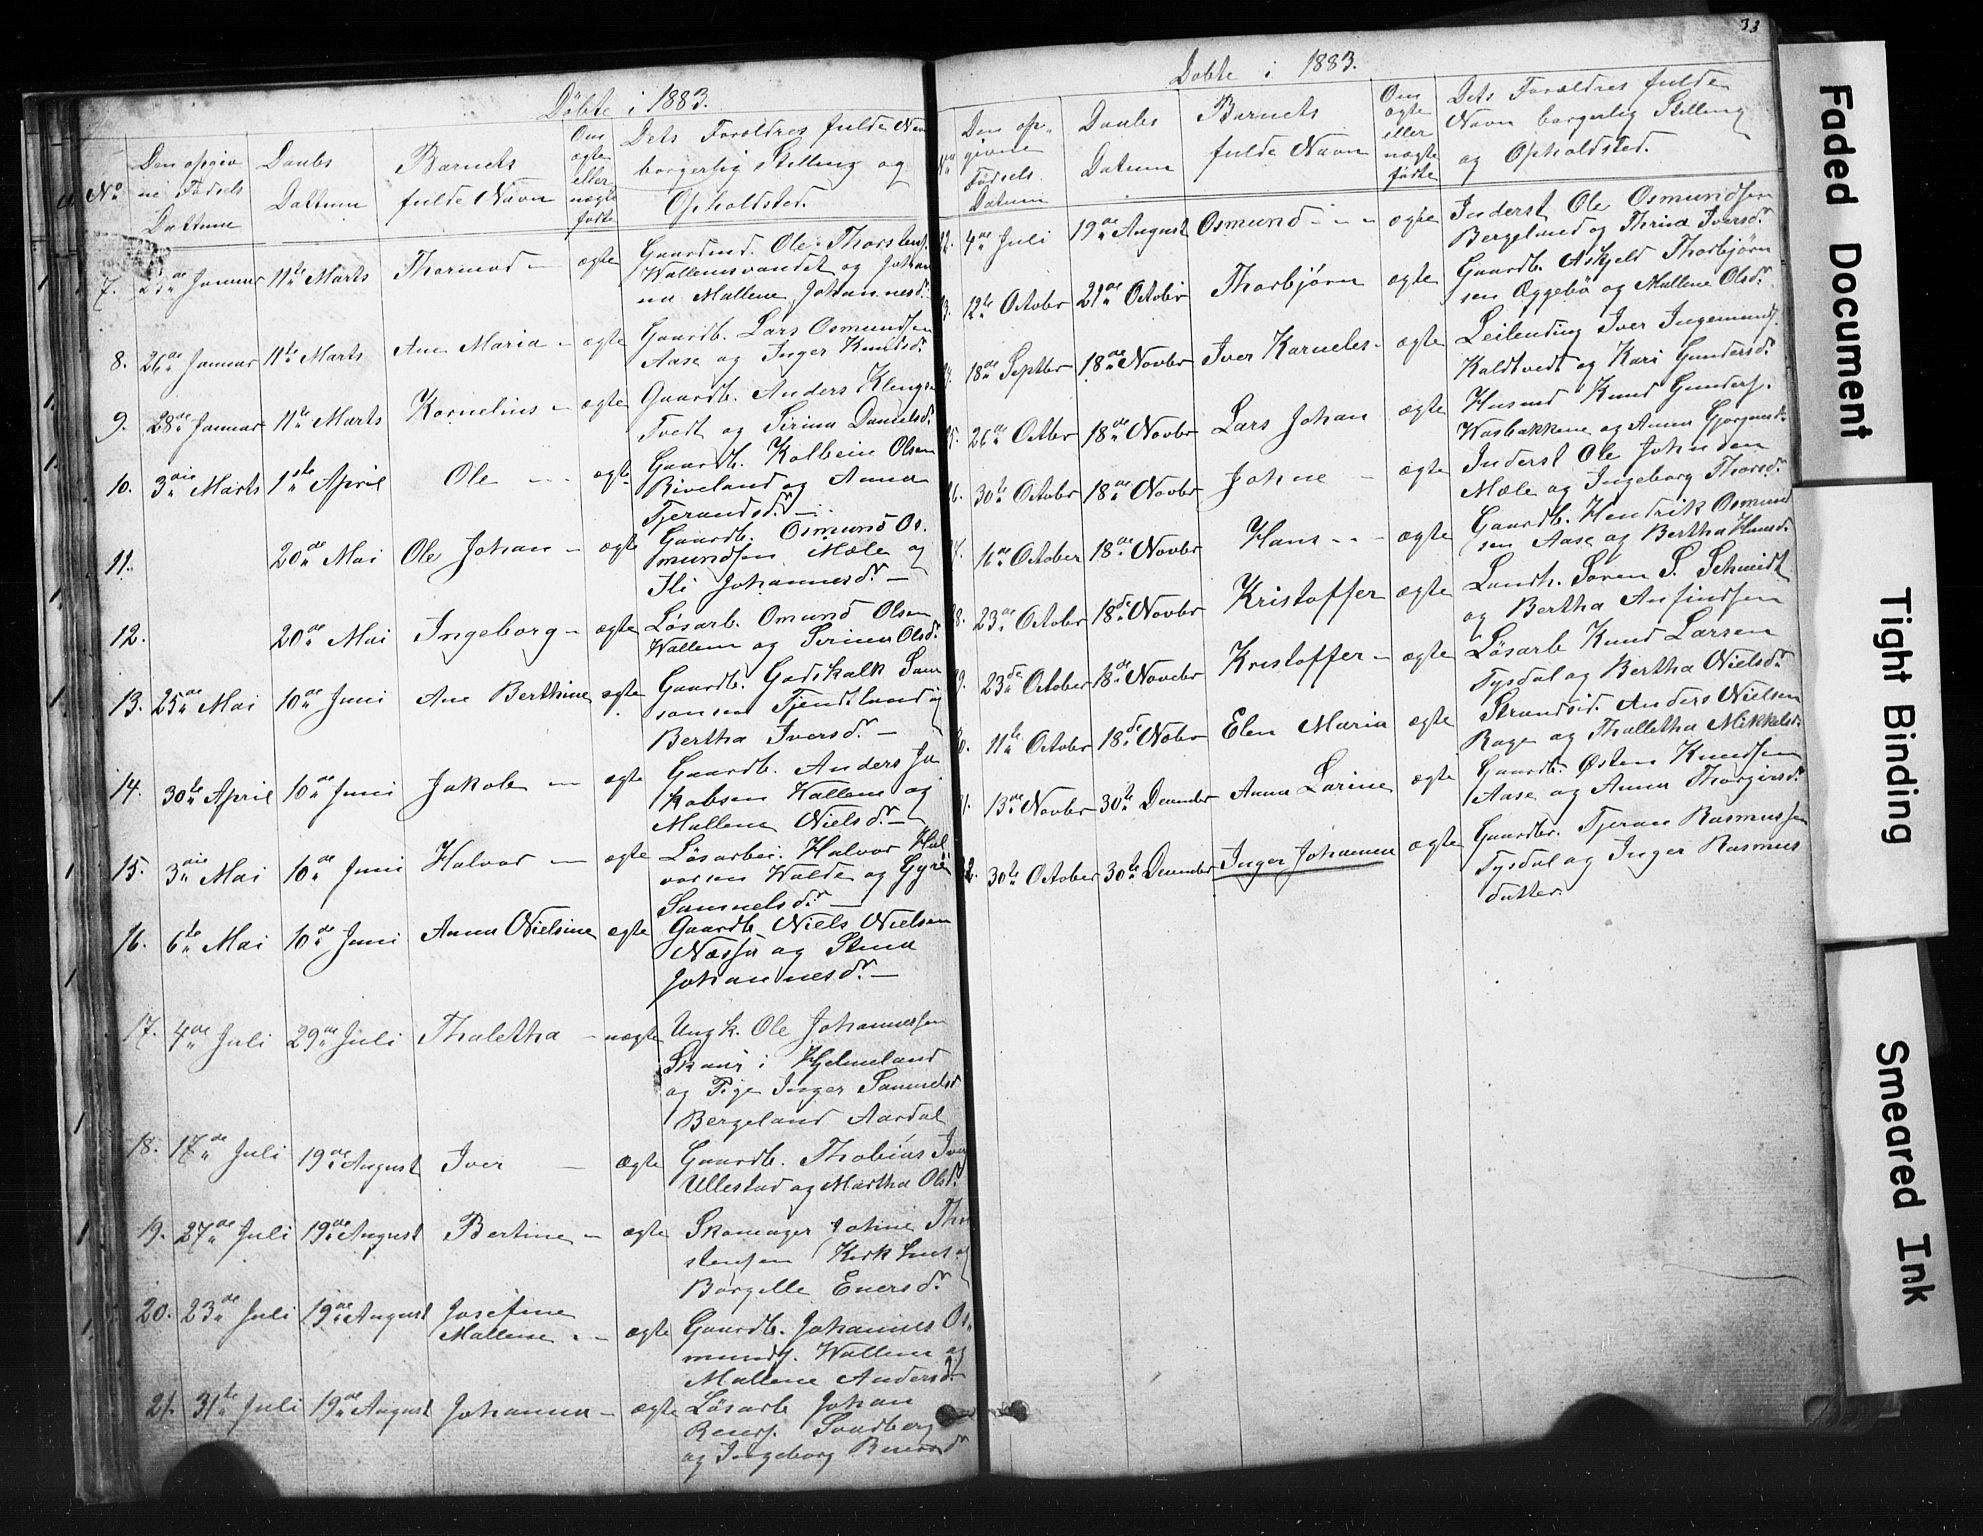 Döbte i 1883.
No
Den opgiv
ne Fødsels
Dattum
Daabs
Dattum
Barnets
fulde Navn
Om
ægte
eller
uægte
fødte
Dets Foraldres fulde Navn
borgerlig Stilling og
Opholdsted.
7. 23de Januar 11te Marts Thormod – ægte Gaardmd. Ole Thorstens.
Wallemsvandet og Johan
na Mallene Johannesdr.
8. 26de Januar 11te Marts Ane Maria – ægte Gaardb. Lars Osmundsen
Aase og Inger Knudsdr.
9. 28de Januar 11te Marts Kornelius – ægte Gaardb. Anders Klengs
Tvedt og Serina Danielsdr.
10. 3die Marts 1ste April Ole – ægte Gaardb. Kolbein Olsen
Riveland og Anna
Tjerandsdr. –
11. 20de Mai Ole Johan – ægte Gaardb. Osmund Os.
mundsen Mæle og
Ili Johannesdr. –
12. 20de Mai Ingeborg – ægte Løsarb. Omund Olsen
Wallem og Serina Olsdr.
13. 25de Mai 10de Juni Ane Berthine ægte Gaardb. Godskalk Sam
sonsen Tjentland og
Bertha Iversdr. –
14. 30te April 10de Juni Jakob – ægte Gaardb. Anders Ja
kobsen Wallem og
Mallena Nielsdr. –
15. 3die Mai 10de Juni Halvor – ægte Løsarbei. Halvor Hal
vorsen Walde og Gyri
Samuelsdr. –
16. 6te Mai 10de Juni Anna Nielsine ægte Gaardb. Niels Nielsen
Nessa og Stina
Johannesdr. –
17. 4de Juli 29de Juli Thaletha – uægte Ungk. Ole Johannessen
Skaar i Hjelmeland
og Pige Inger Samuelsd
Bergeland Aardal
18. 17de Juli 19de August Iver – ægte Gaardb. Thobias Iver
Ullestad og Martha Olsdr.
19. 27de Juli 19de August Bertine – ægte Skomager Johne Tho
stensen Kirkhus og
Borgille Enersdr.
20. 23de Juli 19de August Josefine
Mallene – ægte Gaardb. Johannes Os.
munds. Wallem og
Mallene Andersdr.
21. 31te Juli 19de August Johanna – ægte Løsarb Johan
Reiers. Sandberg
og Ingeborg Reiersdr
33
Dobte i 1883.
Den op.
givne
Fødsels.
Datum
Daabs
Datum
Barnets
fulde Navn
Om
ægte
eller
uægte
fødte
Dets Foraldres fulde
Navn borgerlig Stilling
og Opholdsted.
4de Juli 19de August Osmund – – – ægte Inderst Ole Osmundsen
Bergeland og Thrina Iversdr.
12te October 21de October Thorbjørn ægte Gaardb. Askjeld Thorbjørn
sen Eggebø og Mallene Olsdr.
18de Septbr 18de Novbr Iver Karneles – ægte Leilending Iver Ingemunds.
Kaldtvedt og Kari Gundersdr.
26de Octbr 18de Novbr Lars Johan ægte Husmd Knud Gunders.
Wasbakkene og Anna
30te Octobr 18de Novbr Johne – ægte Inderst Ole Johnsen
Mæle og Ingeborg Thorsdr.
16de October 18de Novbr Hans – – – ægte Gaardb. Hendrik Osmund
sen Aase og Bertha Hansdr.
23de Octobr 18de Novbr Kristoffer ægte Landh. Søren S. Schmidt
og Bertha Anfindsen
23de October 18de Novebr Kristoffer – ægte Løsarb Knud Larsen
Tysdal og Bertha Nielsdr
11te Octobr 18de Nobr Elen Maria ægte Strandsid. Anders Nielsen
Rage og Thalletha Mikkelsd.
13de Novbr 30te December Anna Larine ægte Gaardb. Østen Knudsen
Aase og Anna Thorgersdr.
30te October 30te December Inger Johanna ægte Gaardbr. Tjeran Rasmussen
Tysdal og Inger Rasmus
datter.
Faded Document
Tight Binding
Smeared Ink